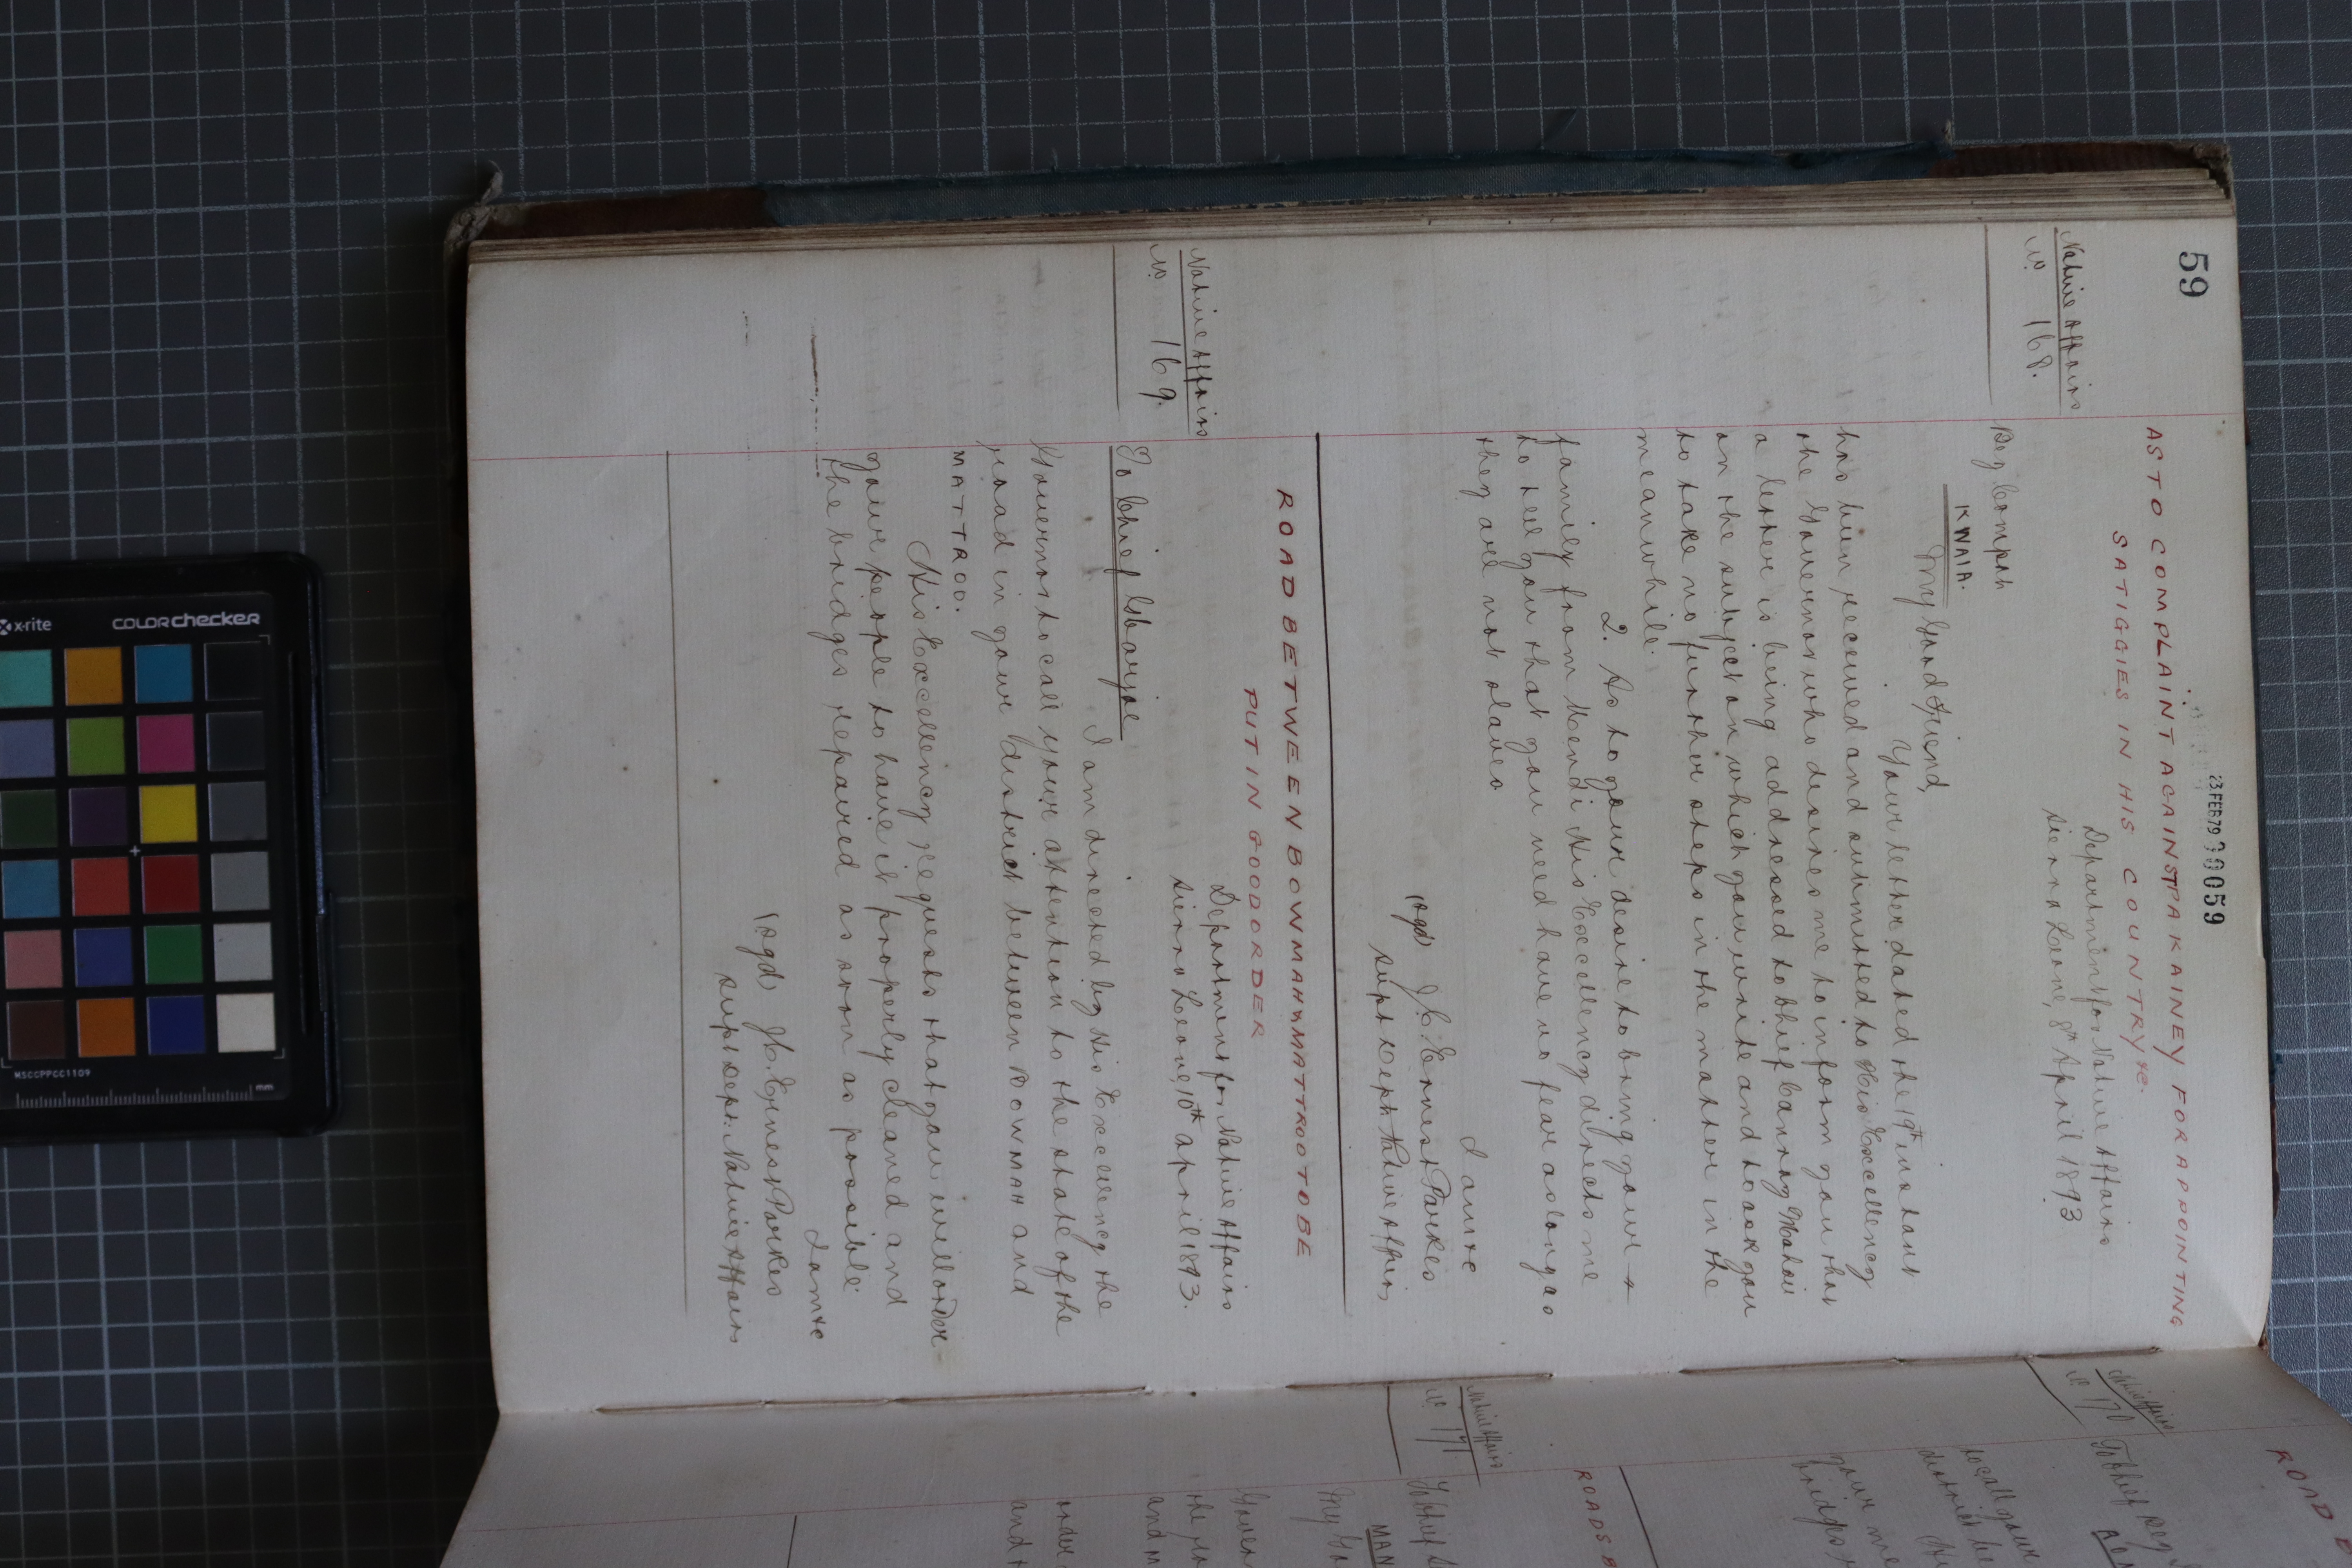 59
23 FEB 79 00059
AS TO COMPLAINT AGAINST PA KAINEY FOR APPOINTING
SATIGGIES IN HIS COUNTRY &c.
Native Affairs
No. 168.
Department for Native Affairs
Sierra Leone, 8th April 1893
Beg Compah
KWAIA.
My Good Friend,
Your letter dated the 19th instant
has been received and submitted to His Excellency
the Governor who desires me to inform you that
a letter is being addressed to Chief Canray Mahoi
on the subject on which you write and to ask you
to take no further steps in the matter in the
meanwhile.
2. As to your desire to bring your
family from Mendi His Excellency directs me
to tell you that you need have no fear as long as
they are not slaves
I am &c
(sgd) J. C. Ernest Parkes
Supt Dept Native Affairs
ROAD BETWEEN BOWMAH & MATTROO TO BE
PUT IN GOOD ORDER
Native Affairs
No. 169.
Department for Native Affairs
Sierra Leone, 10th April 1893.
To Chief Gbanjoe
I am directed by His Excellency the
Governor to call your attention to the state of the
road in your district between BOWMAH and
MATTROO.
His Excellency requests that you will order
your people to have it properly cleaned and
the bridges repaired as soon as possible
I am &c
(sgd) J. C. Ernest Parkes
Supt Dept. Native Affairs
ROAD
Native Affairs
No. 170
To Chief Beg
to call your
district be
your me
bridges
ROADS B
Native Affairs
No. 171
To Chief
MAN
My Go
Govern
the
and m
order
and
x-rite
COLORchecker
MSCCPPCC1109
mm